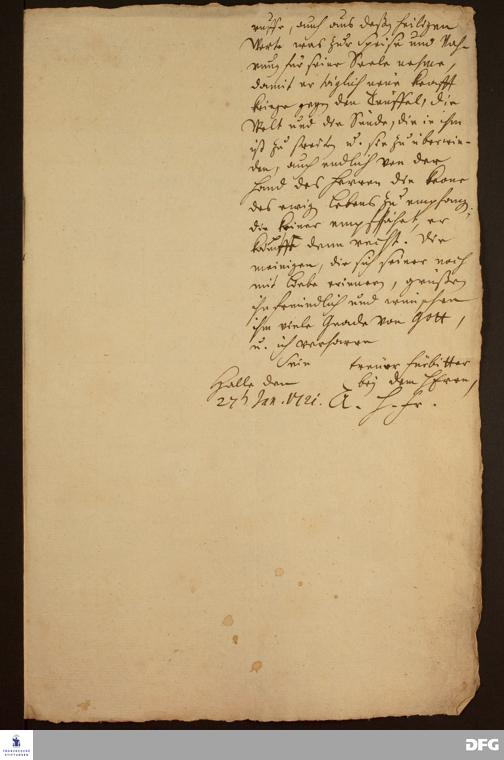 ruffe, auch aus deßen heiligen
Worte was zur Speise und Nah-
rung für seine Seele nehme,
damit er täglich neue Krafft
kriege gegen den Teuffel, die
Welt und die Sünde, die in ihm
ist zu streiten u. sie zu überwin-
den, auch endlich von der
Hand des Herren die Krone
des ewig. Lebens zu empfang.
die keiner empfähet, er
kämpffe denn recht. Die
meinigen, die sich seiner noch
mit Liebe erinnern, grüßen
ihn freundlich und wünschen
ihm viele Gnade von Gott,
u. ich verharre
Sein treuer Fürbitter
Halle den bey dem Herrn,
27 Jan. 1721. A. H. Fr.
FRANCKESCHE
STIFTUNGEN
DFG